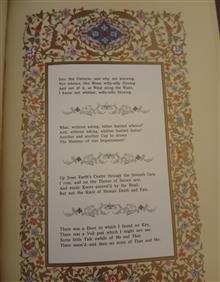 Into this Universe, and why not knowing,
Nor whence, like Water willy-nilly flowing:
And out of it, as Wind along the Waste,
I know not whither, willy-nilly blowing.
What, without asking, hither hurried whence?
And, without asking, whither hurried hence!
Another and another Cup to drown
The Memory of this Impertinence!
Up from Earth's Centre through the Seventh Gate
I rose, and on the Throne of Saturn sate,
And many Knots unravel'd by the Road;
But not the Knot of Human Death and Fate.
There was a Door to which I found no Key:
There was a Veil past which I might not see:
Some little Talk awhile of Me and Thee
There seem'd—and then no more of Thee and Me.